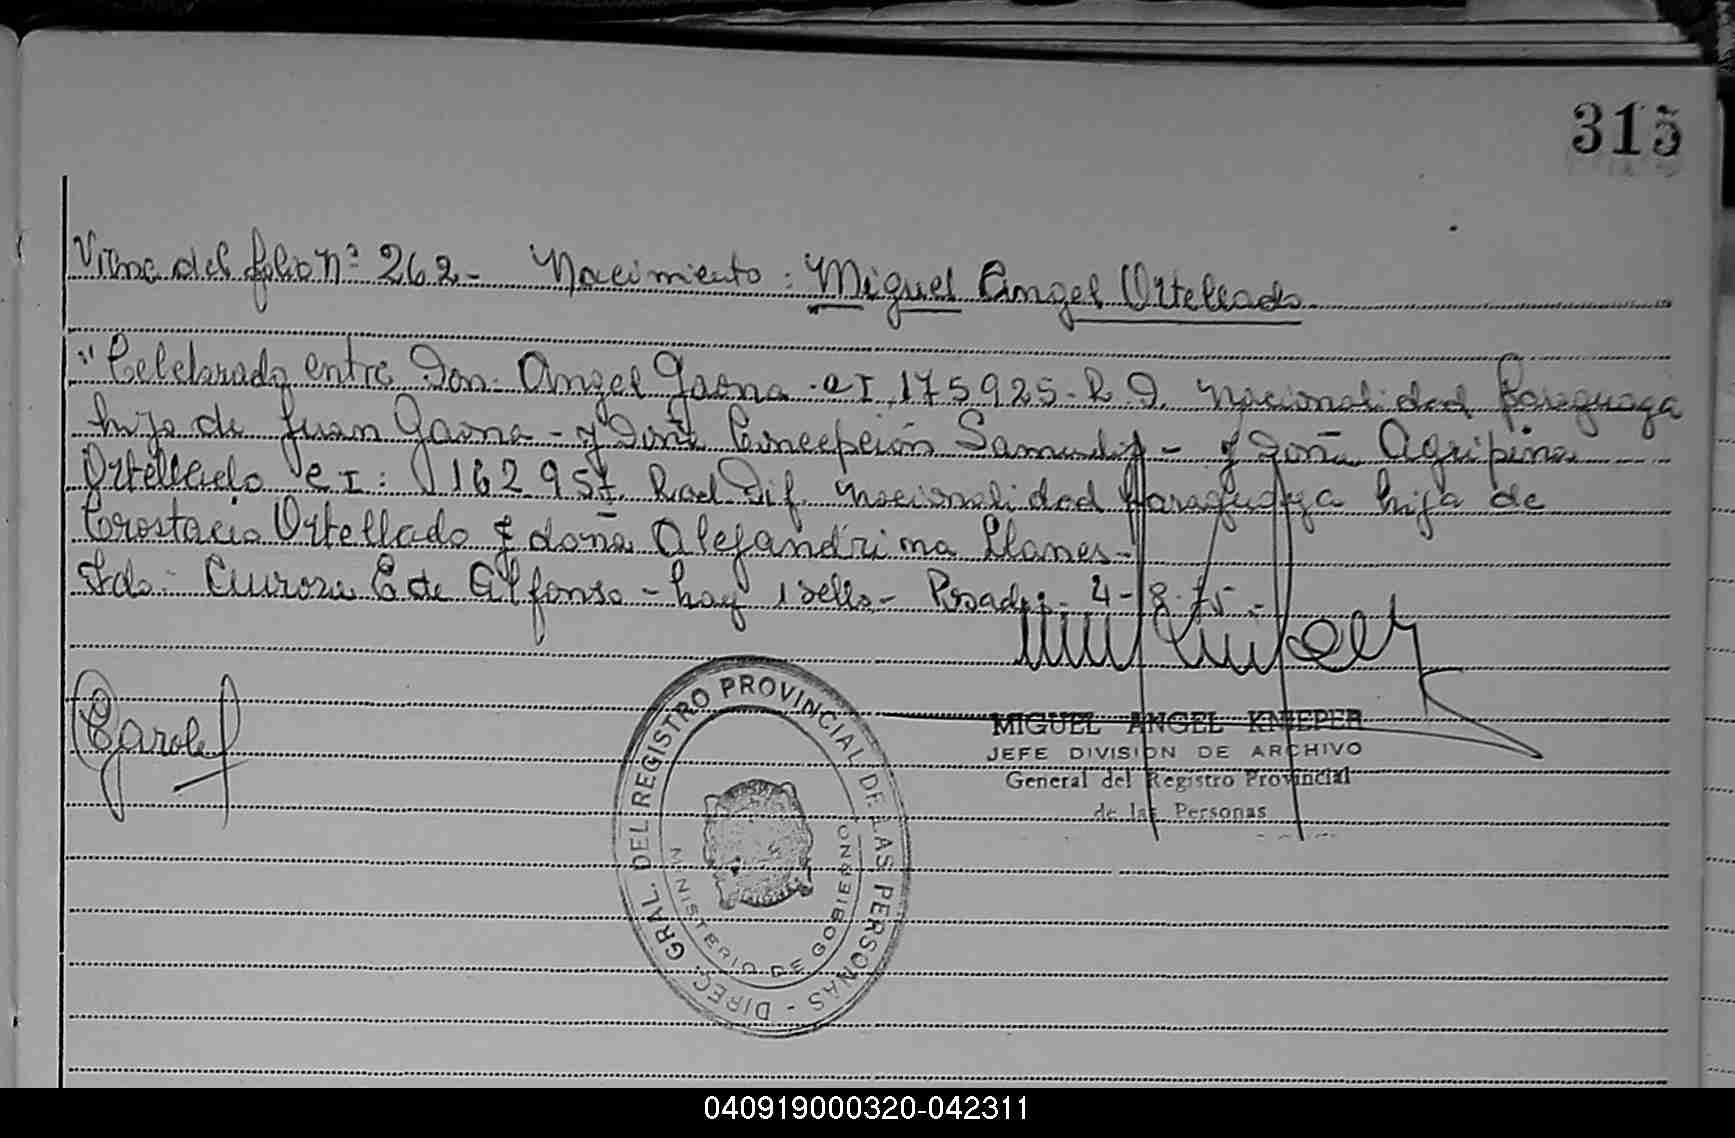 315
Viene del folio Nº 262 - Nacimiento: Miguel Angel Ortellado
"Celebrado entre Don Angel Gaona - C I. 175925 - R. D. nacionalidad Paraguaya
hijo de Juan Gaona - y Doña Concepción Samudio - y doña Agripina
Ortellado C I: 162957 Rad Dif. nacionalidad Paraguaya hija de
Crostacio Ortellado y doña Alejandrina Llanes -
Fdo: Aurora E de Alfonso - hay 1 sello - Posadas - 4-8-75 -
MIGUEL ANGEL KNIEPER
JEFE DIVISION DE ARCHIVO
General del Registro Provincial
de las Personas
DIREC. GRAL. DEL REGISTRO PROVINCIAL DE LAS PERSONAS -
MINISTERIO DE GOBIERNO
040919000320-042311